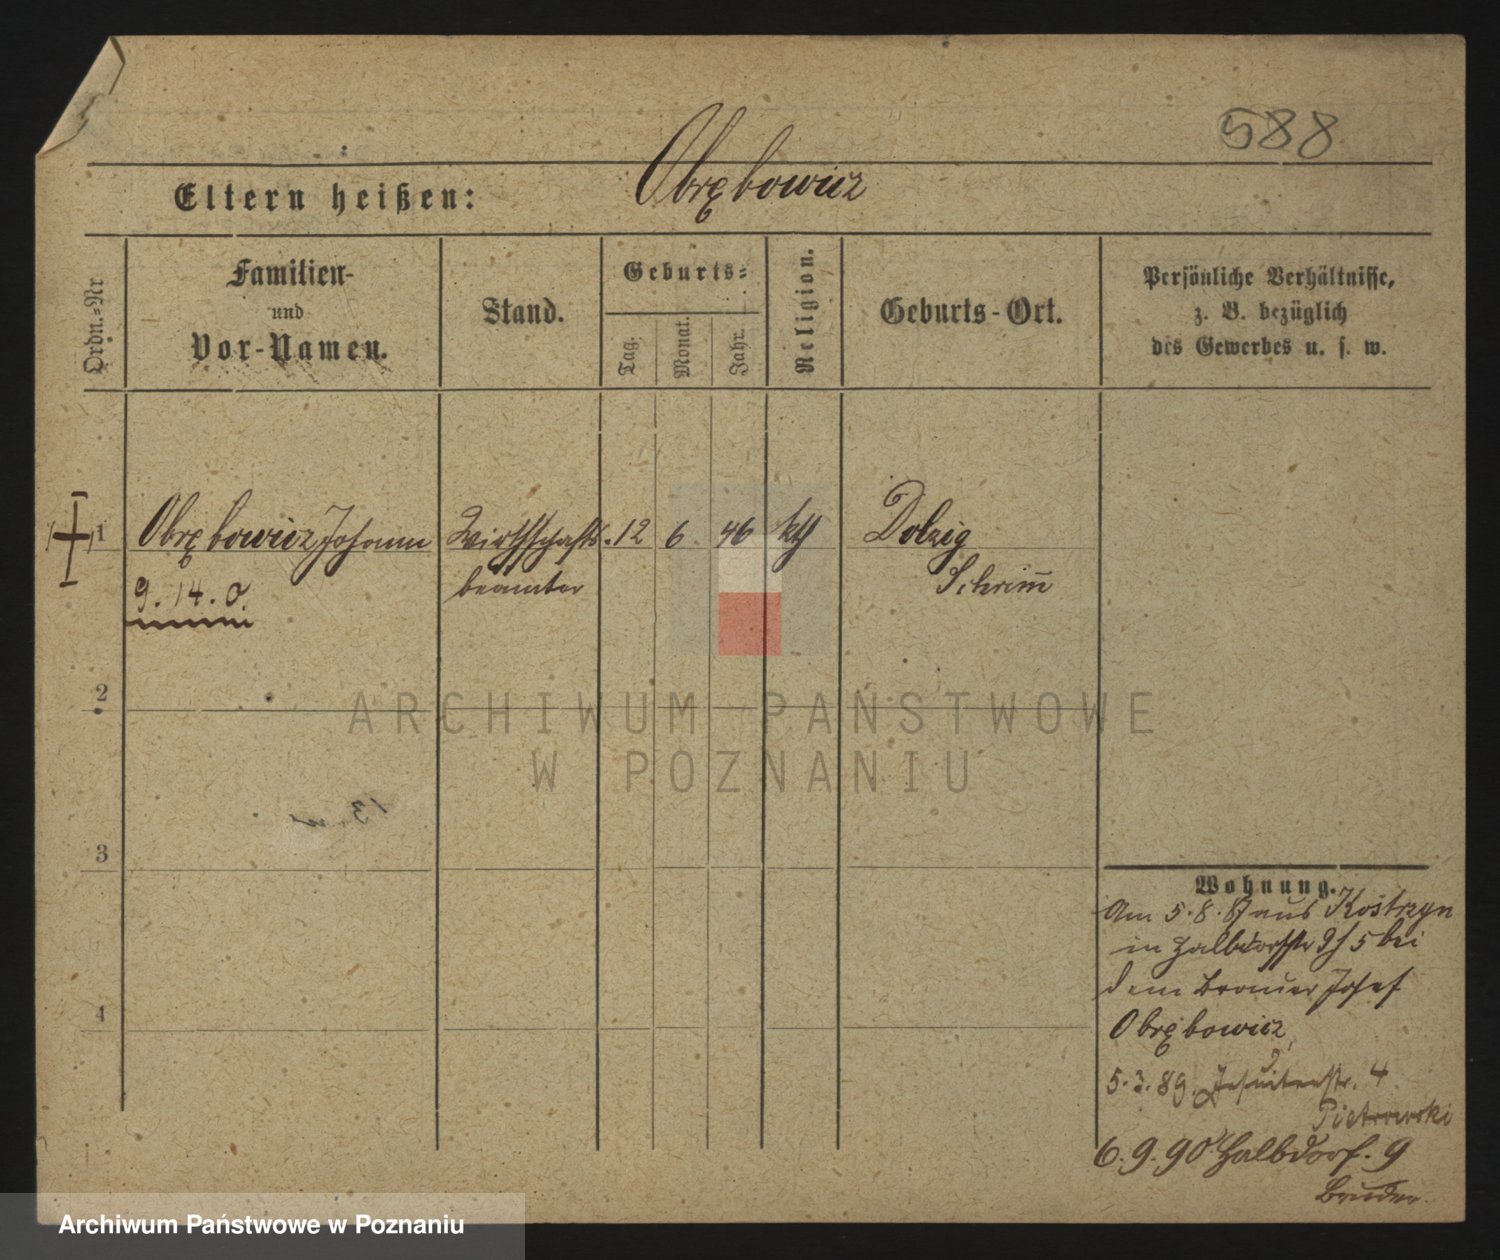 588
Eltern heißen: Obrębowicz
Ordn.=Nr
Familien-
und
Vor-Namen.
Stand.
Geburts=
Tag.
Monat.
Jahr.
Religion.
Geburts-Ort.
Persönliche Verhältnisse,
z. B. bezüglich
des Gewerbes u. s. w.
1 Obrębowicz Johann Wirthschafts- 12 6 46 kth Dolzig
beamter Schrim̅
9. 14. 0.
2
ARCHIWUM PAŃSTWOWE
W POZNANIU
3
4
Wohnung.
Am 5.8.87 aus Kostrzyn
in Halbdorfstr 9/5 bei
dem Brauer Josef
Obrębowicz,
5.3.89. Jesuitenstr. 4
Pietrowski
6.9.90 Halbdorf. 9
Bruder.
Archiwum Państwowe w Poznaniu